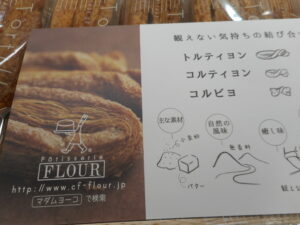 観えない気持ちの結び合
トルティヨン
コルティヨン
コルビヨ
主な素材
小麦粉
バター
自然の
風味
無着色
癒し味
Pâtisserie
FLOUR
http://www.cf-flour.jp
マダムヨーコ で検索